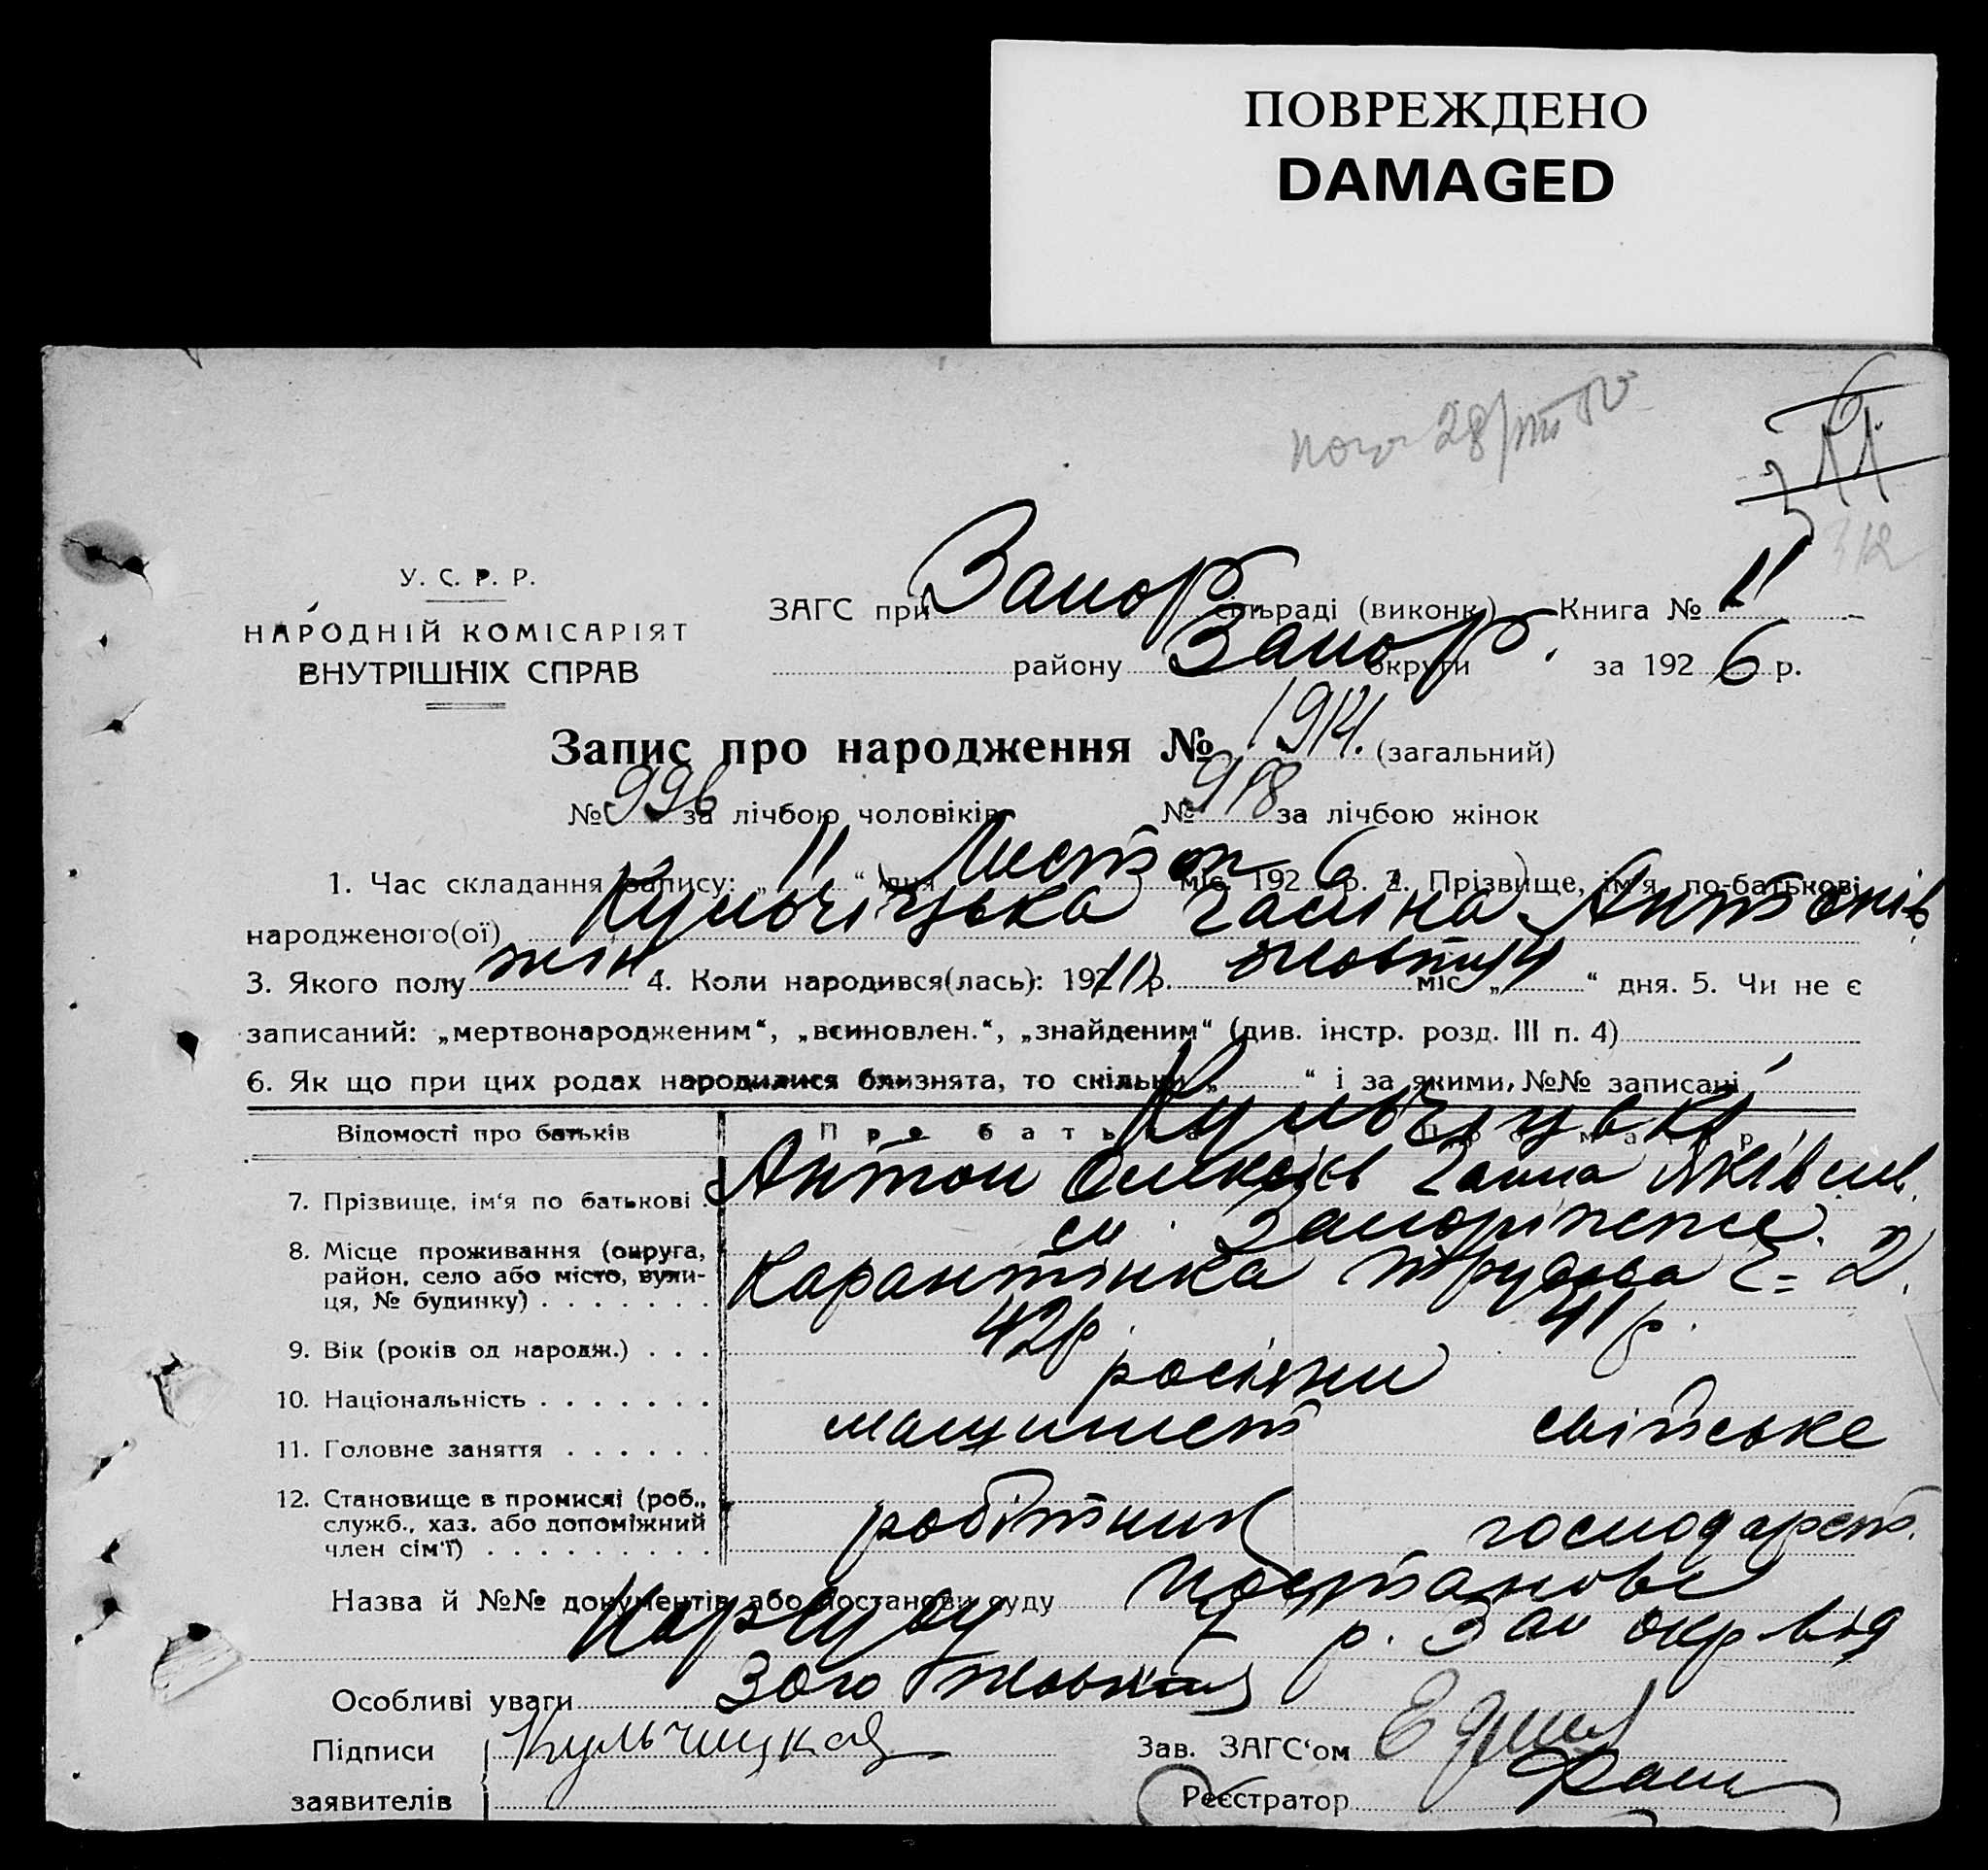 ПОВРЕЖДЕНО
DAMAGED
У. С. Р. Р.
НАРОДНІЙ КОМІСАРІЯТ
ВНУТРІШНІХ СПРАВ
ЗАГС при Запор. сільраді (виконк.) Книга № 11
району Запор. округи за 1926 р.
Запис про народження № 1914. (загальний)
№ 996 за лічбою чоловіків № 918 за лічбою жінок
1. Час складання запису: „ 11 “ дня Листоп міс. 1926 р. 2. Прізвище, ім'я, по-батькові
народженого(ої) Кульчіцька Галіна Антонів
3. Якого полу жін 4. Коли народився(лась): 19 р. жовтн міс. „ 14 “ дня. 5. Чи не є
записаний: „мертвонародженим“, „всиновлен.“, „знайденим“ (див. інстр. розд. III п. 4)
6. Як що при цих родах народилися близнята, то скільки „ “ і за якими, №№ записані
Відомості про батьків Про батька Про матір
Кульчіцькі
7. Прізвище, ім'я по батькові . Антон Олексів Ганна Яківлів.
8. Місце проживання (округа, район, село або місто, вули- ця, № будинку) . . . . . . . Запоріжже.
Карантінка Трудова 2.
9. Вік (років од народж.) . . . 42 р. 41 р.
10. Національність . . . . . . . росіяни
11. Головне заняття . . . . . . машинист свійське
12. Становище в промислі (роб., служб., хаз. або допоміжний член сім'ї) . . . . . . . . . робітник господарст.
Назва й №№ документів або постанови суду постанові
Нарсуду 7 р. Зап окр від
Особливі уваги 30го жовтня
Підписи Кульчицкая Зав. ЗАГС'ом
заявителів Реєстратор